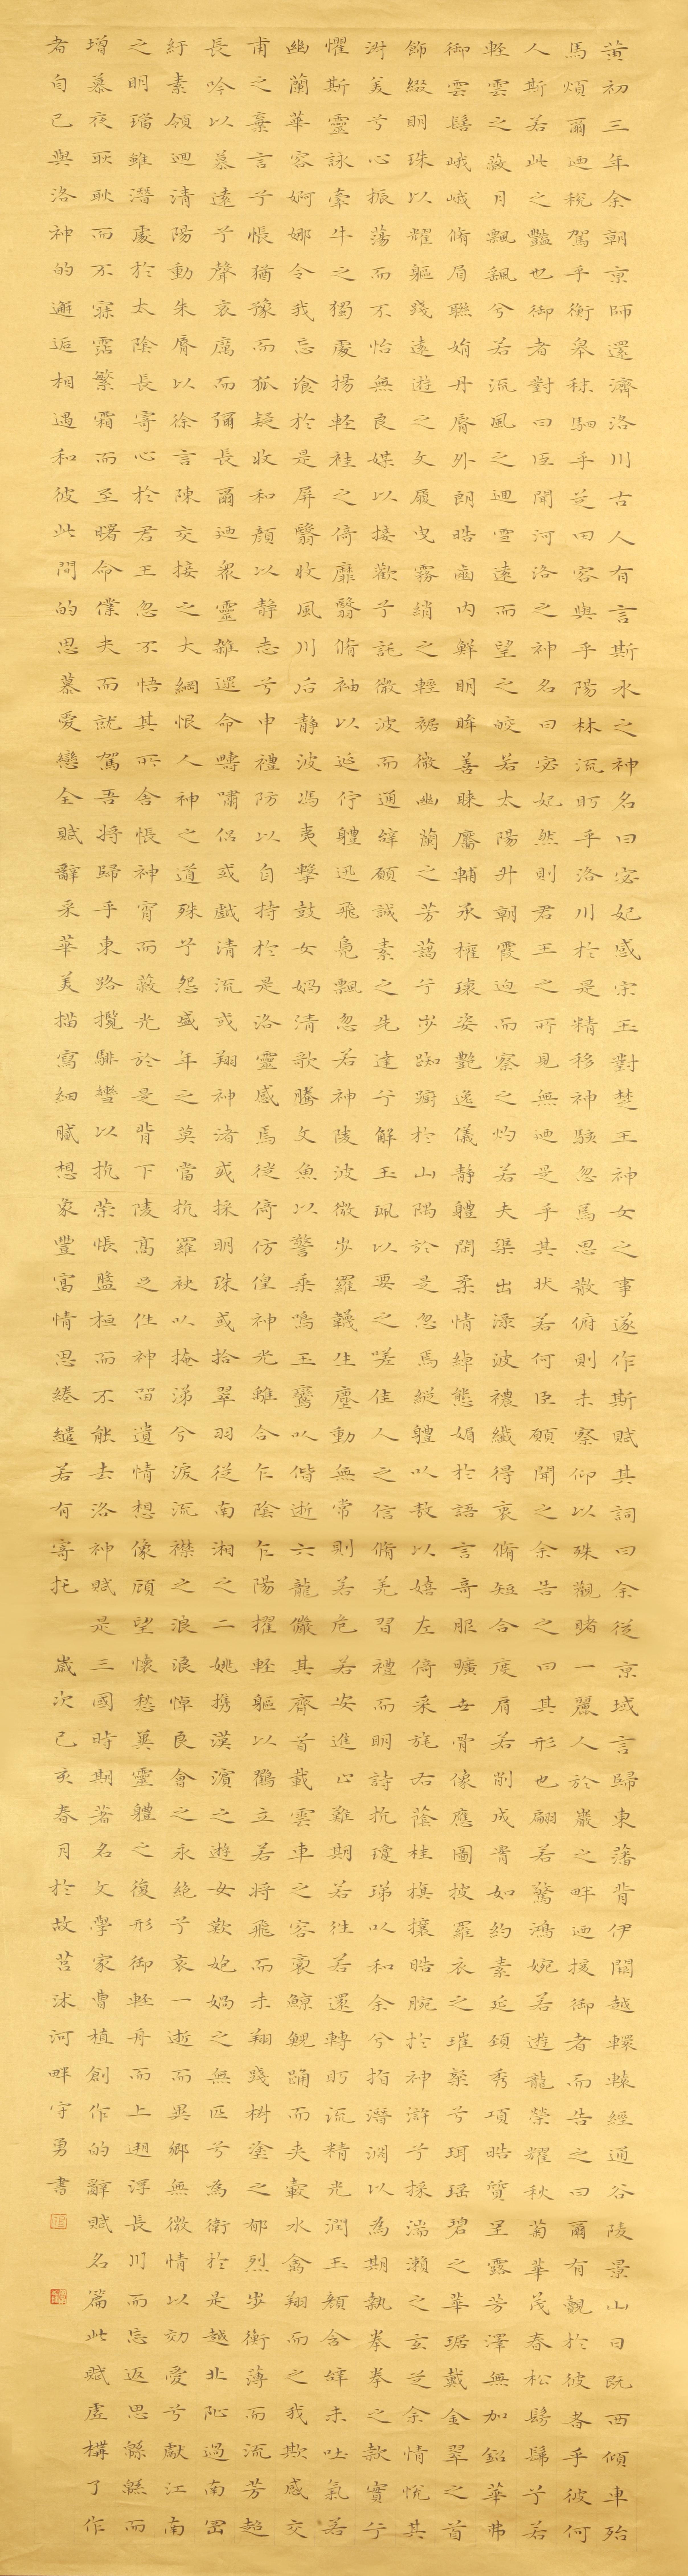 黃初三年余朝京師還濟洛川古人有言斯水之神名曰宓妃感宋玉對楚王神女之事遂作斯賦其詞曰余從京域言歸東藩背伊闕越轘轅經通谷陵景山日既西傾車殆
馬煩爾迺稅駕乎衡皋秣駟乎芝田容與乎陽林流盻乎洛川於是精移神駭忽焉思散俯則未察仰以殊觀睹一麗人於巖之畔迺援御者而告之曰爾有覿於彼者乎彼何
人斯若此之豔也御者對曰臣聞河洛之神名曰宓妃然則君王之所見無迺是乎其狀若何臣願聞之余告之曰其形也翩若驚鴻婉若遊龍榮耀秋菊華茂春松髣髴兮若
輕雲之蔽月飄颻兮若流風之迴雪遠而望之皎若太陽升朝霞迫而察之灼若夫渠出淥波禯纖得衷脩短合度肩若削成腰如約素延頸秀項皓質呈露芳澤無加鉛華弗
御雲髻峨峨脩眉聯娟丹脣外朗皓齒內鮮明眸善睞靨輔承權瓌姿艷逸儀靜體閑柔情綽態媚於語言奇服曠世骨像應圖披羅衣之璀粲兮珥瑤碧之華琚戴金翠之首
飾綴明珠以耀軀踐遠遊之文履曳霧綃之輕裾微幽蘭之芳藹兮步踟躕於山隅於是忽焉縱體以敖以嬉左倚采旄右蔭桂旗攘皓腕於神滸兮採湍瀨之玄芝余情悅其
淑美兮心振蕩而不怡無良媒以接歡兮託微波而通辭願誠素之先達兮解玉珮以要之嗟佳人之信脩羌習禮而明詩抗瓊珶以和余兮指潛淵以為期執拳拳之款實兮
懼斯靈詠牽牛之獨處揚輕袿之倚靡翳脩袖以延佇體迅飛鳧飄忽若神陵波微步羅襪生塵動無常則若危若安進止難期若往若還轉盻流精光潤玉顏含辭未吐氣若
幽蘭華容婀娜令我忘飡於是屏翳收風川后靜波馮夷擊鼓女媧清歌騰文魚以警乘鳴玉鸞以偕逝六龍儼其齊首載雲車之容裔鯨鯢踊而夾轂水禽翔而之我欺感交
甫之棄言兮悵猶豫而狐疑收和顏以靜志兮申禮防以自持於是洛靈感焉徙倚仿偟神光離合乍陰乍陽擢輕軀以鶴立若將飛而未翔踐椒塗之郁烈步衡薄而流芳超
長吟以慕遠兮聲哀厲而彌長爾迺眾靈雜遝命疇嘯侶或戲清流或翔神渚或採明珠或拾翠羽從南湘之二姚攜漢濱之遊女歎匏媧之無匹兮為衛於是越北沚過南岡
紆素領迴清陽動朱脣以徐言陳交接之大綱恨人神之道殊兮怨盛年之莫當抗羅袂以掩涕兮淚流襟之浪浪悼良會之永絕兮哀一逝而異鄉無微情以効愛兮獻江南
之明璫雖潛處於太陰長寄心於君王忽不悟其所舍悵神宵而蔽光於是背下陵高足往神留遺情想像顧望懷愁冀靈體之復形御輕舟而上遡浮長川而忘返思緜緜而
增慕夜耿耿而不寐霑繁霜而至曙命僕夫而就駕吾將歸乎東路攬騑轡以抗策悵盤桓而不能去洛神賦是三國時期著名文學家曹植創作的辭賦名篇此賦虛構了作
者自己與洛神的邂逅相遇和彼此間的思慕愛戀全賦辭采華美描寫細膩想象豐富情思綣繾若有寄托 歲次己亥春月於故莒沭河畔守勇書